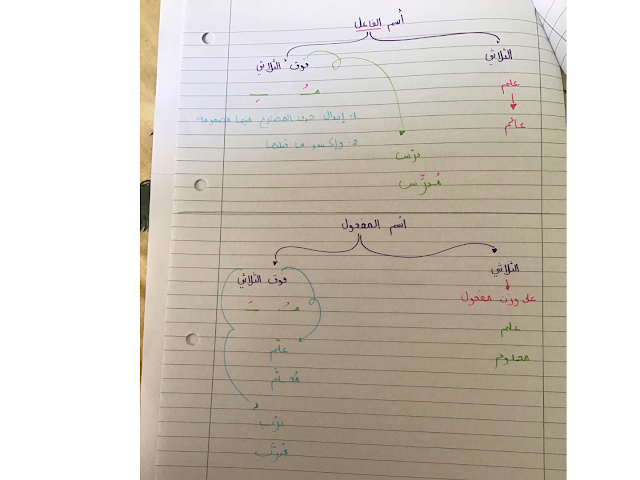 أسم الفاعل
الثلاثي
فوق الثلاثي
علم
مـُ ـِ
عالم
1- إبدال حرف المضارع ميما مضمومة
2 وإكسر ما قبلها
درّس
مُدرِّس
أسم المفعول
الثلاثي
فوق الثلاثي
على وزن مفعول
مـُ ـَ
علم
علّم
معلوم
مُعلَّم